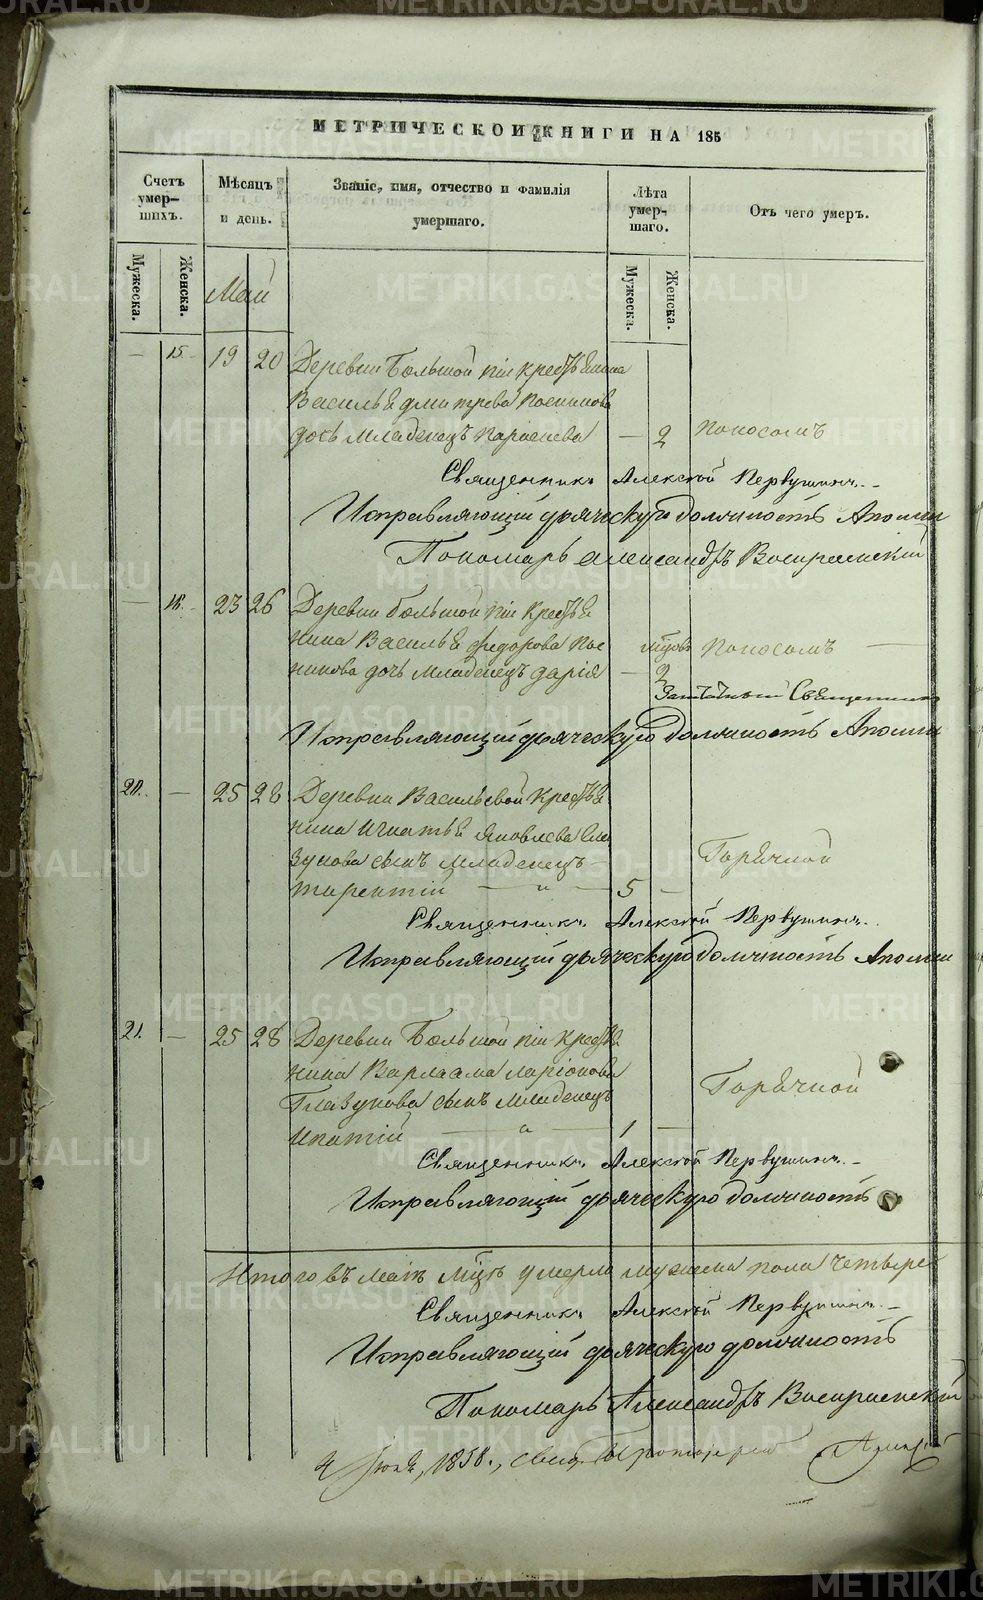 МЕТРИЧЕСКОЙ КНИГИ НА 185
Счетъ умер-шихъ.
Мѣсяцъ и день.
Званіе, имя, отчество и фамилія умершаго.
Лѣта умер-шаго.
Отъ чего умеръ.
Мужеска.
Женска.
Май
Мужеска.
Женска.
— 15 19 20 Деревни Большой
Василья Дмитрева
дочь младенецъ — 2 Поносомъ
Священникъ Алексѣй Первушинъ
Исправляющій дьяческую должность
Пономарь Александръ
— 23 26 Деревни Большой
нина Василья Федорова Пос
никова дочь младенецъ Дарія — 2 Поносомъ —
Священникъ
Исправляющій дьяческую должность
20. — 25 28 Деревни Васильевой Крестья
нина Игнатья Яковлева Гла
зунова сынъ младенецъ
Терентій — „ — 5 — Горячкой
Священникъ Алексѣй Первушинъ
Исправляющій дьяческую должность
21. — 25 28 Деревни Большой
нина Варлаама Ларіонова
Глазунова сынъ младенецъ Горячкой
Ипатій — „ — 1 —
Священникъ Алексѣй Первушинъ
Исправляющій дьяческую должность
Итого въ маѣ мцѣ умерло мужеска пола четыре
Священникъ Алексѣй Первушинъ
Исправляющій дьяческую должность
Пономарь Александръ
4 Іюня, 1858.,
METRIKI.GASO-URAL.RU